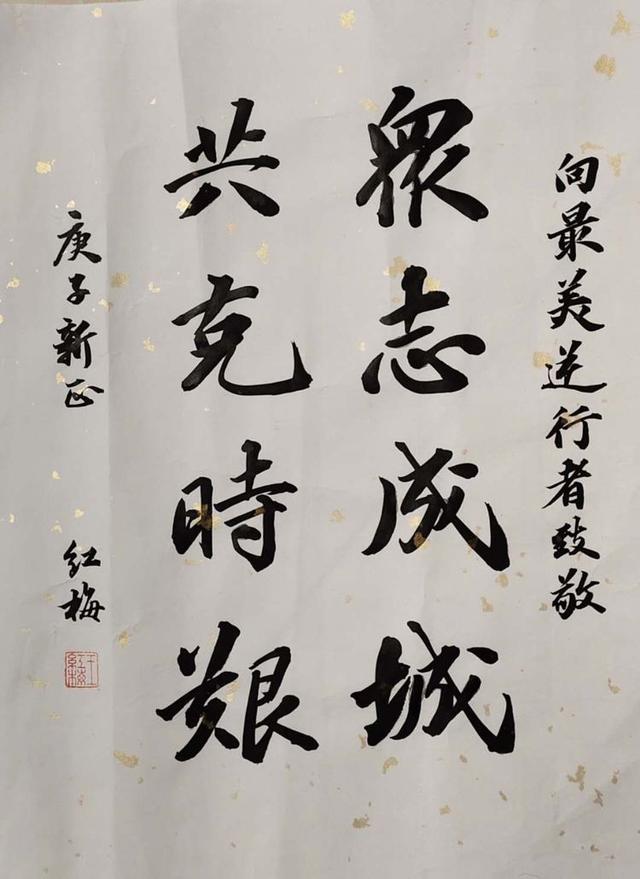 向最美逆行者致敬
眾志成城
共克時艱
庚子新正 红梅